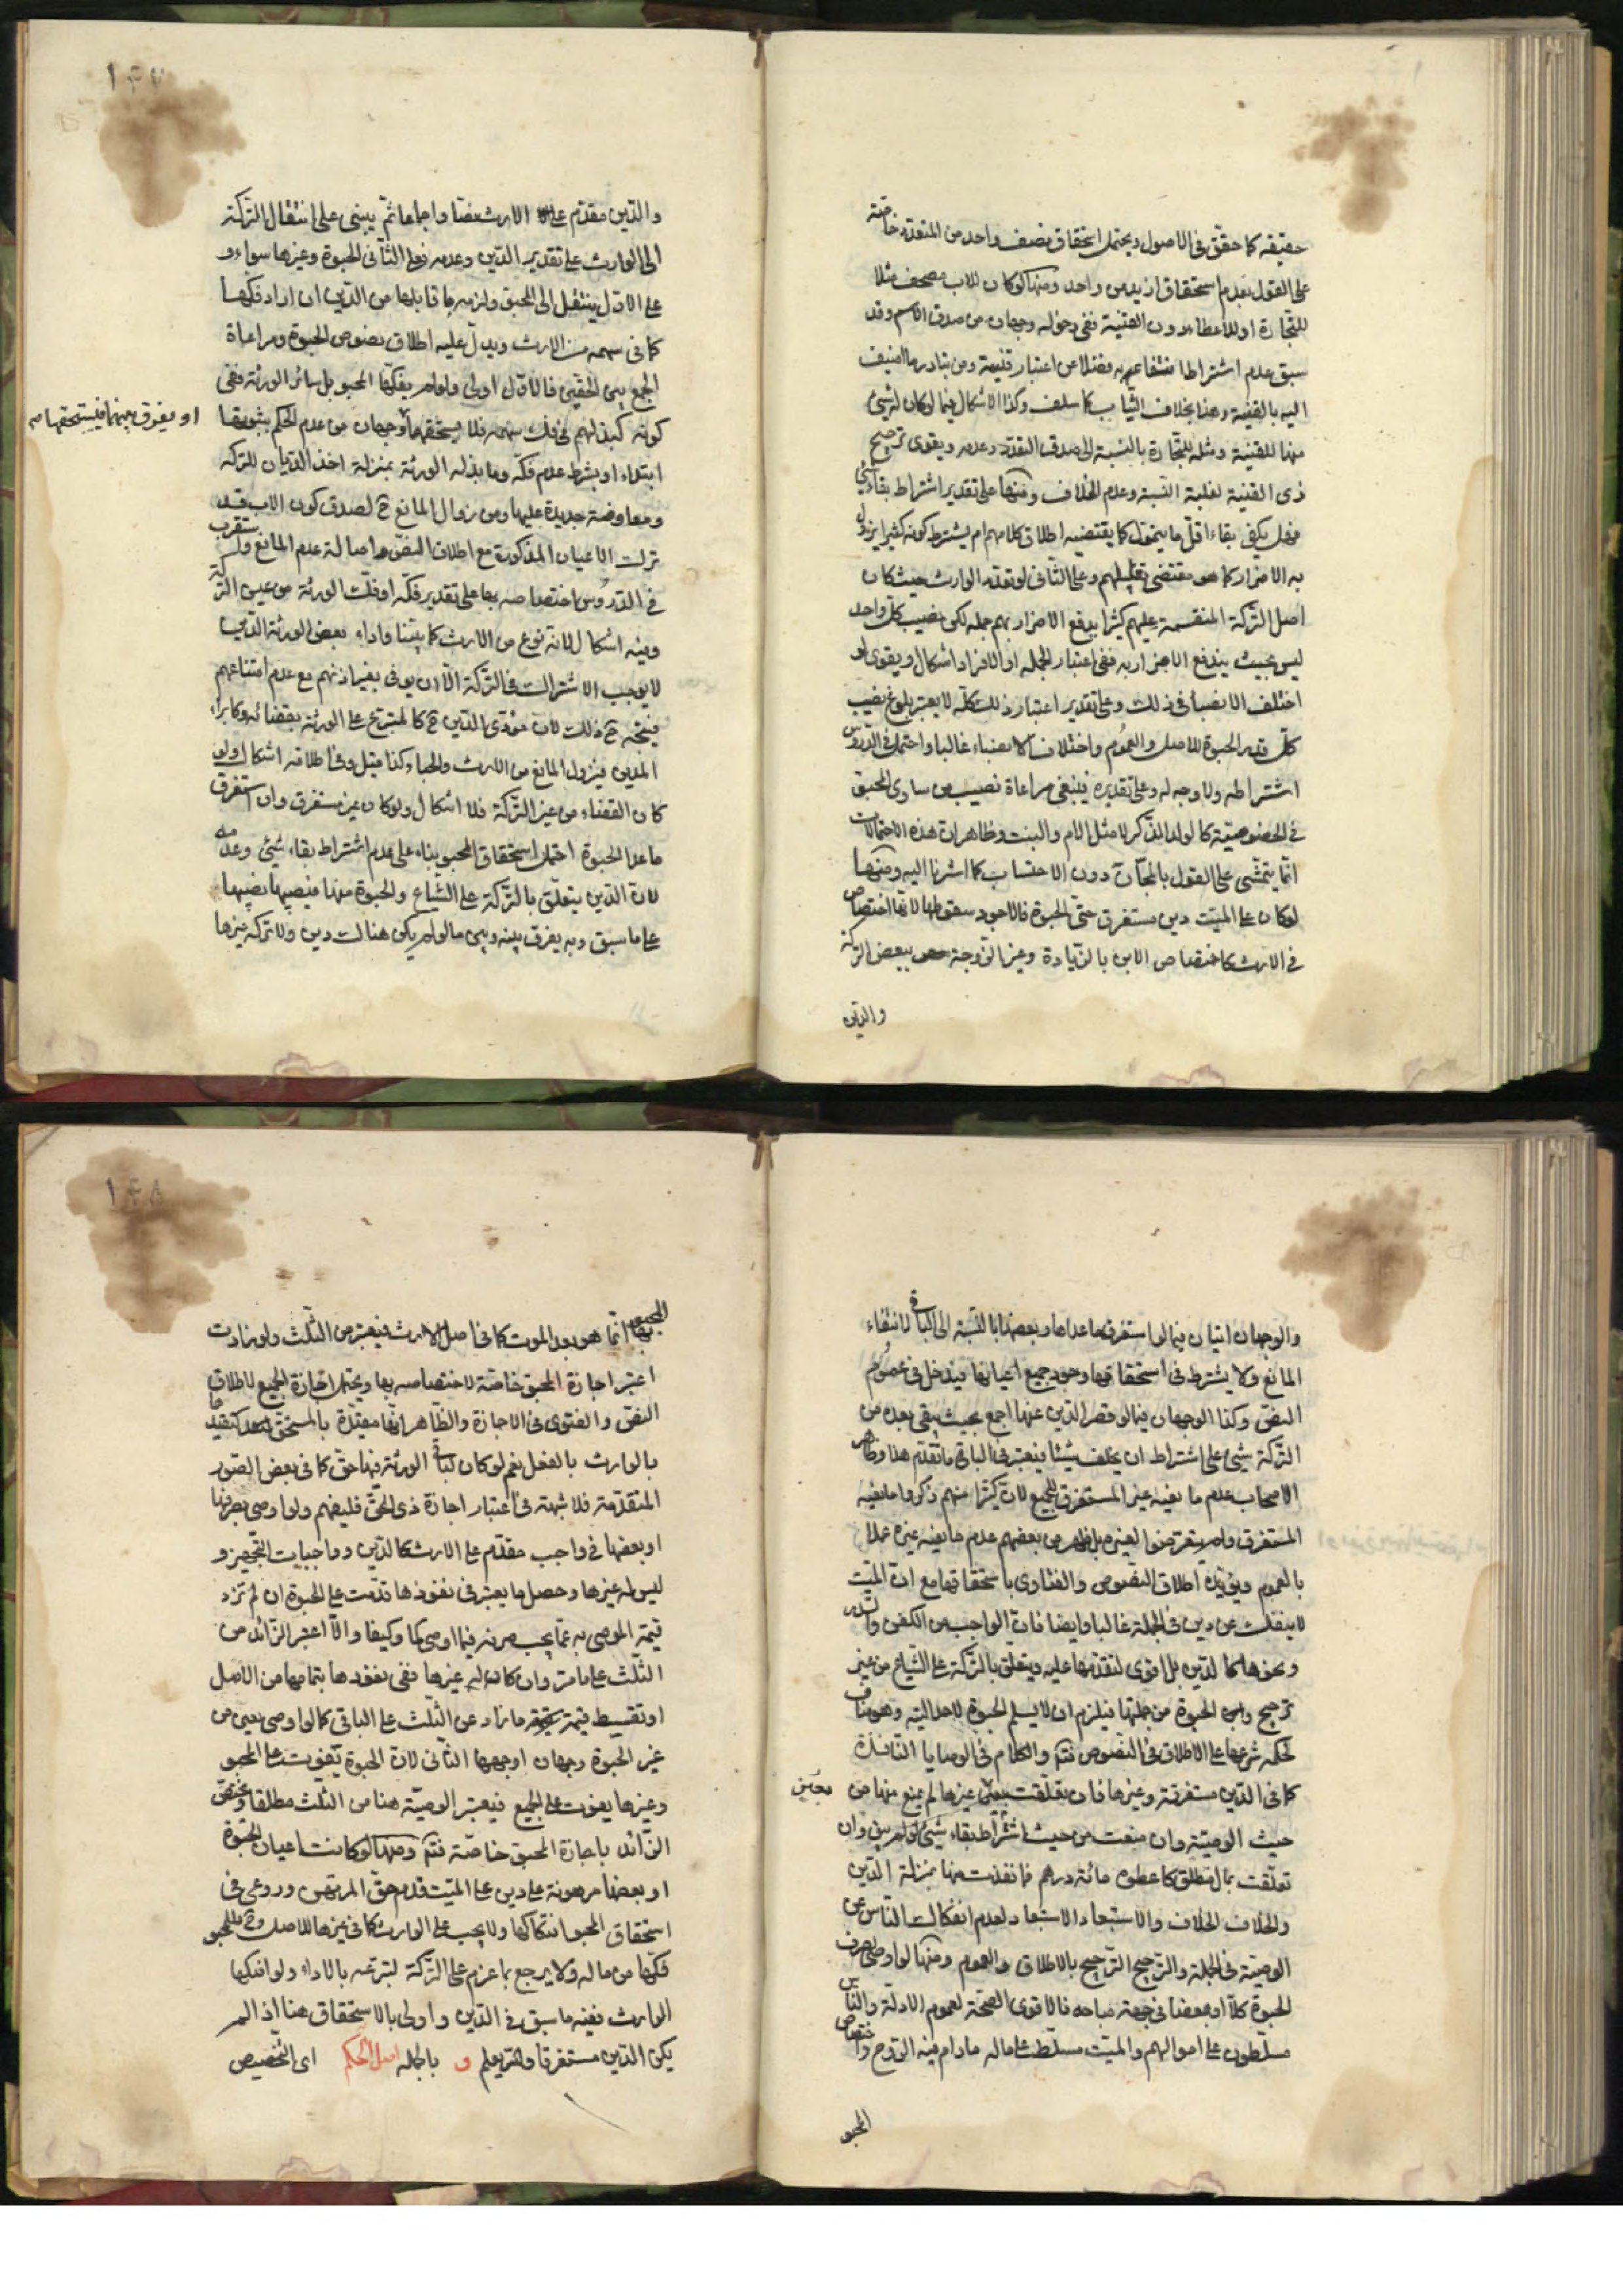 حقيقة كما حقق في الاصول ويحتمل استحقاق نصف واحد من المتعدد خاصة
على القول بعدم استحقاق ازيد من واحد ومنها لو كان للاب مصحف مثلا
للتجارة او للاعطاء دون القنية ففي دخوله وجهان من صدق الاسم وقد
سبق عدم اشتراط انتفاعه به فضلا عن اعتبار قنيته ومن تبادر ما اضيف
اليه بالقنية وهذا بخلاف الثياب كما سلف وكذا الاشكال فيما لو كان له شيء
منها للقنية ومثله للتجارة بالنسبة الى صدق التعدد وعدمه ويقوى ترجيح
ذى القنية لغلبة النسبة وعدم الخلاف ومنها على تقدير اشتراط بقاء شيء
فهل يكفى بقاء اقل ما يتمول كما يقتضيه اطلاق كلامهم ام يشترط كونه كثيرا يزول
به الاضرار كما هو مقتضى تعليلهم وعلى الثانى لو تعدد الوارث حيث كان
اصل التركة المنقسمة عليهم كثيرا يدفع الاضرار بهم جملة لكن نصيب كل واحد
ليس بحيث يندفع الاضرار به ففى اعتبار الجملة او الافراد اشكال ويقوى لو
اختلف الانصباء فى ذلك وعلى تقدير اعتبار ذلك كله لا يعتبر بلوغ نصيب
كل قدر الحبوة للاصل والعموم واختلاف الانصباء غالبا واحتمل فى الدروس
اشتراطه ولا وجه له وعلى تقديره فينبغى مراعاة نصيب من ساوى المحبو
فى الخصوصية كالولد الذكر لا مثل الام والبنت وظاهر ان هذه الاحتمالات
انما يتمشى على القول بالمجان دون الاحتساب كما اشرنا اليه ومنها
لو كان على الميت دين مستغرق حتى الحبوة فالاجود سقوطها لانها اختصاص
فى الارث كاختصاص الابن بالزيادة وغير الزوجة ببعض التركة
والدين
١٤٧
والدين مقدم على الارث نصا واجماعا ثم يبنى على انتقال التركة
الى الوارث على تقدير الدين وعدمه فعلى الثانى الحبوة وغيرها سواء و
على الاول ينتقل الى المحبو ولزمه ما قابلها من الدين ان اراد فكها
كما فى سهمه من الارث ويدل عليه اطلاق نصوص الحبوة ومراعاة
الجمع بين الحقين فالاول اولى ولو لم يفكها المحبو بل سائر الورثة ففى
كونه كبذلهم فى فك سهمه فلا يستحقها وجهان من عدم الحكم بثبوتها
او يفرق بينهما فيستحقها
ابتداء او بشرط عدم فكه وما بذله الورثة بمنزلة اخذ الديان للتركة
ومعاوضة جديدة عليها ومن زوال المانع ح لصدق كون الاب قد
ترك الاعيان المذكورة مع اطلاق النص واصالة عدم المانع واستقرب
فى الدروس اختصاصه بها على تقدير فكه او فك الورثة من عين التركة
وفيه اشكال لانه نوع من الارث كما بيناه واداء بعض الورثة الدين
لا يوجب الاشتراك فى التركة الا ان يوفى بغير اذنهم مع عدم امتناعهم
فيتجه ح ذلك لان مؤدى الدين ح كالمتبرع على الورثة بقضائه وكابراء
المدين فيزول المانع من الارث والحباء كذا قيل وفى اطلاقه اشكال ولو
كان القضاء من غير التركة فلا اشكال ولو كان غير مستغرق وان استغرق
ما عدا الحبوة احتمل استحقاق المحبو بناء على عدم اشتراط بقاء شيئ وعدمه
لان الدين يتعلق بالتركة على الشياع والحبوة منها فنصيبها نصيبها
على ما سبق وبه يفرق بينه وبين ما لو لم يكن هناك دين ولا تركة غيرها
والوجهان اتيان فيما لو استغرق ما عداها وبعضها بالنسبة الى الباقى لانتفاء
المانع ولا يشترط فى استحقاقها وجود جميع اعيانها فيدخل فى عموم
النص وكذا الوجهان فيما لو قصر الدين عنها اجمع بحيث يبقى بعده من
التركة شيئ على اشتراط ان يخلف شيئا فيعتبر فى الباقى ما تقدم هذا وظاهر
الاصحاب عدم مانعية غير المستغرق للجميع لان كثيرا منهم ذكروا مانعية
المستغرق ولم يتعرضوا لغيره بل ظهر من بعضهم عدم مانعية غيره عملا
بالعموم ويؤيده اطلاق النصوص والفتاوى باستحقاقها مع ان الميت
لا ينفك عن دين فى الجملة غالبا وايضا فان الواجب من الكفن والسدر
ونحوها كالدين بل اقوى لتقدمها عليه ويتعلق بالتركة على الشياع من غير
ترجيح واعيان الحبوة من جملتها فيلزم ان لا يسلم الحبوة لاحد البتة وهو ينافى
الحكم بشرعها على الاطلاق فى النصوص فتدبر والكلام فى الوصايا النافذة
كما فى الدين مستغرقة وغيرها فان تعلقت بعين غيرها لم يمنع منها من
حيث الوصية وان منعت من حيث اشتراط بقاء شيئ لو لم يبق وان
تعلقت بمال مطلق كاعطوه مائة درهم فانفذت منها بمنزلة الدين
والخلاف الخلاف والاستبعاد الاستبعاد لعدم انفكاك الناس عن
الوصية فى الجملة والترجيح الترجيح بالاطلاق والعموم ومنها لو اوصى بصرف
الحبوة كلا او بعضا فى جهة مباحة فالاقوى الصحة لعموم الادلة والناس
مسلطون على اموالهم والميت مسلط على ماله ما دام فيه الروح واختصاص
المحبو
١٤٨
المحبو بها انما هو بعد الموت كما فى اصل الارث فيعتبر من الثلث ولو زادت
اعتبر اجازة المحبو خاصة لاختصاصه بها ويحتمل اجازة الجميع لاطلاق
النص والفتوى فى الاجازة والظاهر انها مقيدة بالمستحق كتقييدها
بالوارث بالفعل نعم لو كان لباقى الورثة فيها حق كما فى بعض الصور
المتقدمة فلا شبهة فى اعتبار اجازة ذى الحق فليفهم ولو اوصى بصرفها
او بعضها فى واجب مقدم على الارث كالدين وواجبات التجهيز و
ليس له غيرها وحصل ما يعتبر فى نفوذها قدمت على الحبوة ان لم تزد
قيمة الموصى به عما يجب صرفه فيما اوصى كما وكيفا والا اعتبر الزائد من
الثلث على ما مر وان كان له غيرها ففى نفوذها بتمامها من الاصل
او تقسيط قيمة ما زاد عن الثلث على الباقى كما لو اوصى بعين من
غير الحبوة وجهان اوجهها الثانى لان الحبوة تفويت على المحبو
وغيرها يفوت على الجميع فيعتبر الوصية هنا من الثلث مطلقا ويختص
الزائد باجازة المحبو خاصة فتدبر ومنها لو كانت اعيان الحبوة
او بعضها مرهونة على دين على الميت قدم حق المرتهن وروعى فى
استحقاق المحبو افتكاكها ولا يجب على الوارث كما فى غيرها للاصل وللمحبو
فكها من ماله ولا يرجع بما غرم على التركة لتبرعه بالاداء ولو افتكها
الوارث ففيه ما سبق فى الدين واولى بالاستحقاق هنا اذا لم
يكن الدين مستغرقا والله يعلم و بالجملة اصل الحكم اى التخصيص